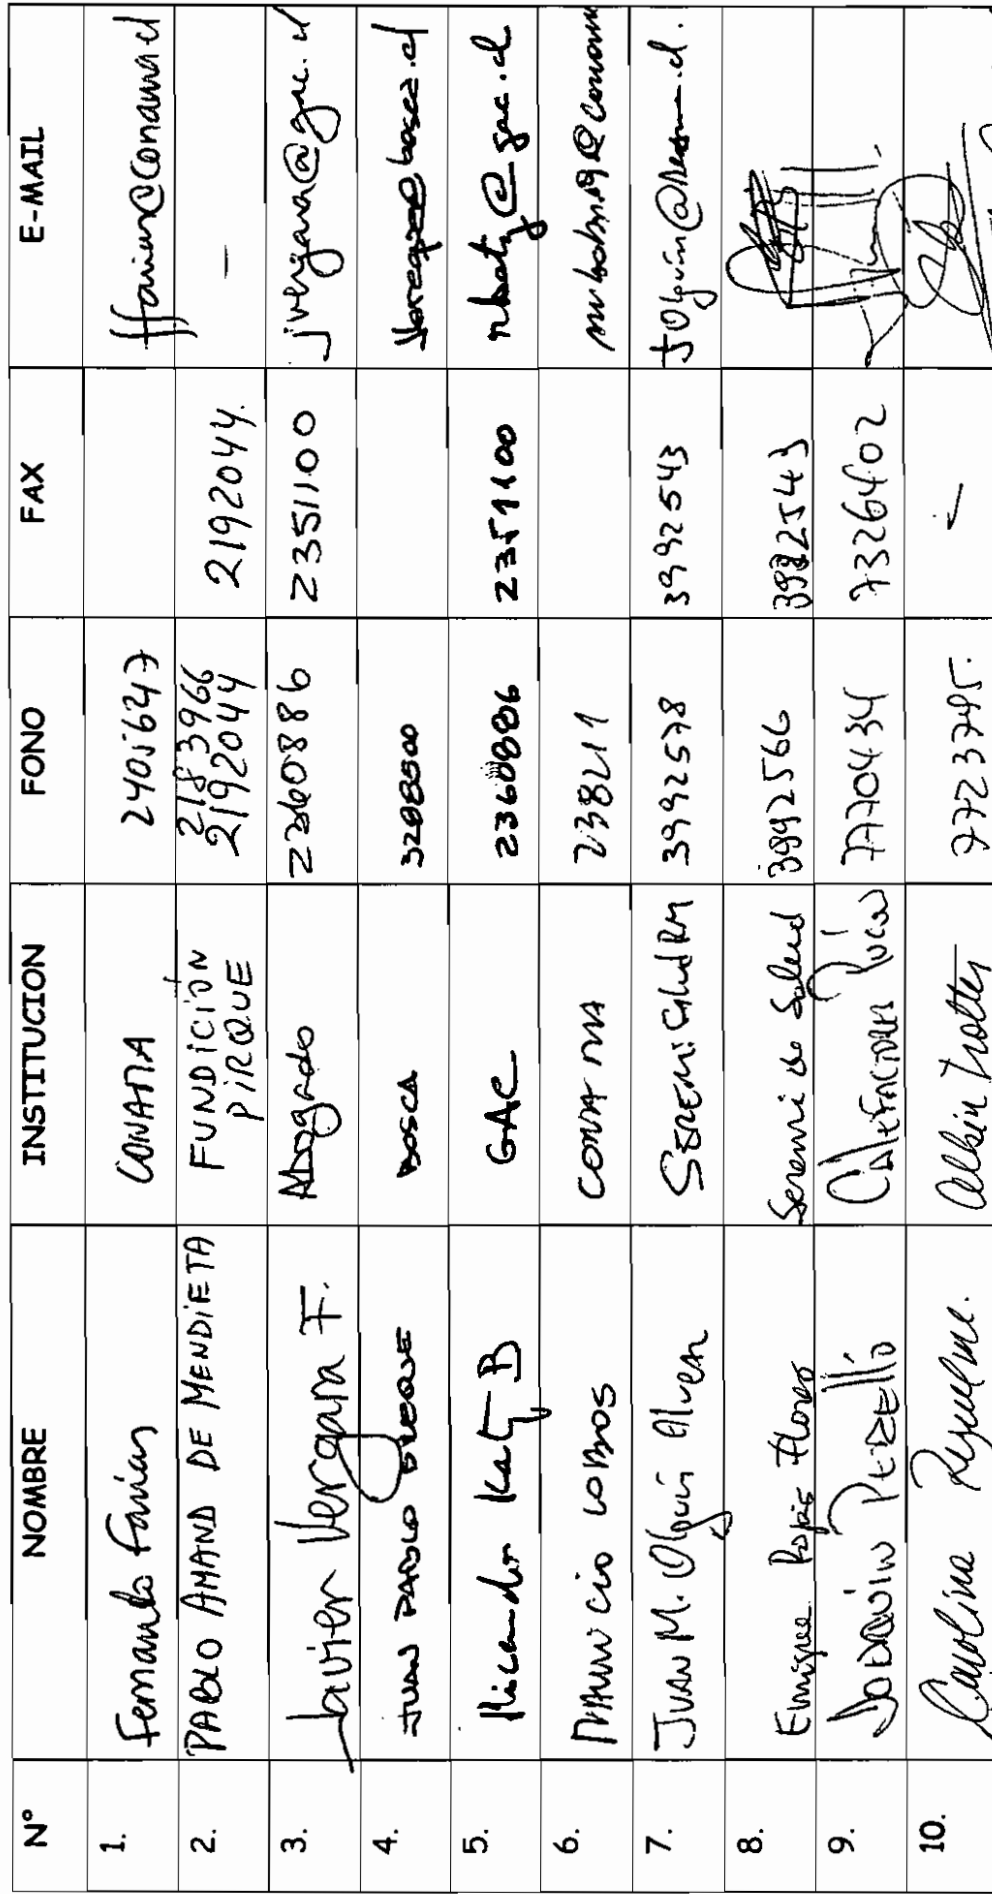 N° NOMBRE INSTITUCION FONO FAX E-MAIL
1. Fernando Farías CONAMA 2405647 ffarias@conama.cl
2. PABLO AMAND DE MENDIETA FUNDICIÓN PIRQUE 2183966 2192044 2192044. —
3. Javier Vergara F. Abogado 2360886 2351100 jvergara@gac.cl
4. JUAN PABLO BOSCA 3288500
5. Ricardo Katz B GAC 2360886 2351100 rkatz@gac.cl
6. MAURICIO LOBOS CONAMA 238211
7. JUAN M. Olguín SEREMI Salud RM 3992578 3992543
8. Enrique Rojas Flores Seremi de Salud 3992566 3992543
9. PERELLÓ CALEFACTORES 7770434 7326402
10. Carolina Riquelme. Albin Trotter 7723795. -